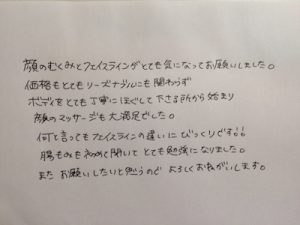 顔のむくみとフェイスラインがとても気になってお願いしました。
価格もとてもリーズナブルにも関わらず
ボディをとても丁寧にほぐして下さる所から始まり
顔のマッサージも大満足でした。
何と言ってもフェイスラインの違いにびっくりです!!
腸もみも初めて聞いてとても勉強になりました。
また お願いしたいと思うので よろしくおねがいします。